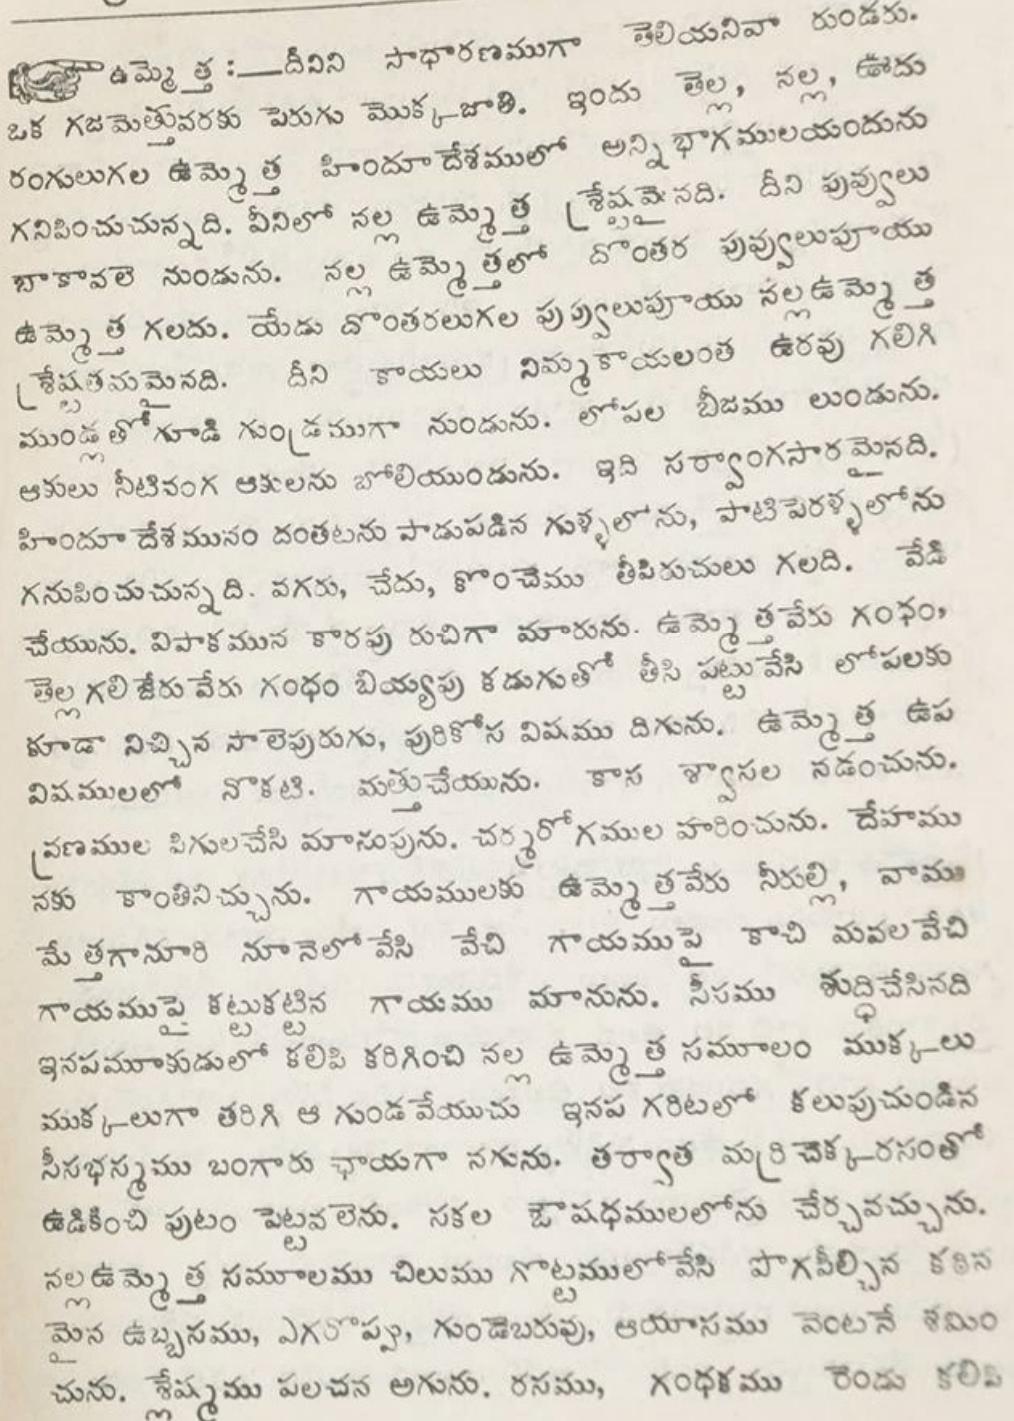 ఉమ్మెత్త :—దీనిని సాధారణముగా తెలియనివా రుండరు.
ఒక గజమెత్తువరకు పెరుగు మొక్కజాతి. ఇందు తెల్ల, నల్ల, ఊదు
రంగులుగల ఉమ్మెత్త హిందూదేశములో అన్నిభాగములయందును
గనిపించుచున్నది. వీనిలో నల్ల ఉమ్మెత్త శ్రేష్టమైనది. దీని పువ్వులు
బాకావలె నుండును. నల్ల ఉమ్మెత్తలో దొంతర పువ్వులుపూయు
ఉమ్మెత్త గలదు. యేడు దొంతరలుగల పువ్వులుపూయు నల్లఉమ్మెత్త
శ్రేష్టతమమైనది. దీని కాయలు నిమ్మకాయలంత ఉరవు గలిగి
ముండ్లతోగూడి గుండ్రముగా నుండును. లోపల బీజము లుండును.
ఆకులు నీటివంగ ఆకులను బోలియుండును. ఇది సర్వాంగసారమైనది.
హిందూదేశమునం దంతటను పాడుపడిన గుళ్ళలోను, పాటిపెరళ్ళలోను
గనుపించుచున్నది. వగరు, చేదు, కొంచెము తీపిరుచులు గలది. వేడి
చేయును. విపాకమున కారపు రుచిగా మారును. ఉమ్మెత్తవేరు గంధం,
తెల్లగలిజేరువేరు గంధం బియ్యపు కడుగుతో తీసి పట్టువేసి లోపలకు
కూడా నిచ్చిన సాలెపురుగు, పురికోస విషము దిగును. ఉమ్మెత్త ఉప
విషములలో నొకటి. మత్తుచేయును. కాస శ్వాసల నడంచును.
వ్రణముల పిగులచేసి మానుపును. చర్మరోగముల హరించును. దేహము
నకు కాంతినిచ్చును. గాయములకు ఉమ్మెత్తవేరు నీరుల్లి, వాము
మేత్తగానూరి నూనెలోవేసి వేచి గాయముపై కాచి మవలవేచి
గాయముపై కట్టుకట్టిన గాయము మానును. సీసము శుద్ధిచేసినది
ఇనపమూకుడులో కలిపి కరిగించి నల్ల ఉమ్మెత్త సమూలం ముక్కలు
ముక్కలుగా తరిగి ఆ గుండవేయుచు ఇనప గరిటలో కలుపుచుండిన
సీసభస్మము బంగారు ఛాయగా నగును. తర్వాత మర్రిచెక్కరసంతో
ఉడికించి పుటం పెట్టవలెను. సకల ఔషధములలోను చేర్చవచ్చును.
నల్లఉమ్మెత్త సమూలము చిలుము గొట్టములోవేసి పొగపీల్చిన కఠిన
మైన ఉబ్బసము, ఎగరొప్పు, గుండెబరువు, ఆయాసము వెంటనే శమిం
చును. శ్లేష్మము పలచన అగును. రసము, గంధకము రెండు కలిపి